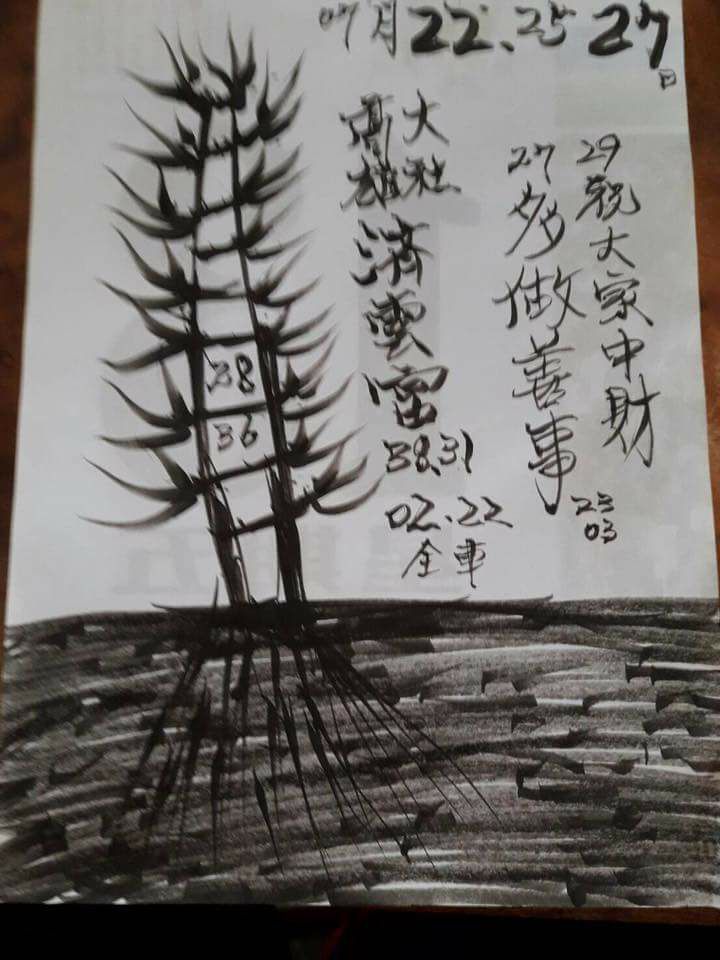 07月22.25 27日
29祝大家中財
27多做善事
23
03
大社
高雄
濟雲宮
38.31
02.22
全車
38
36